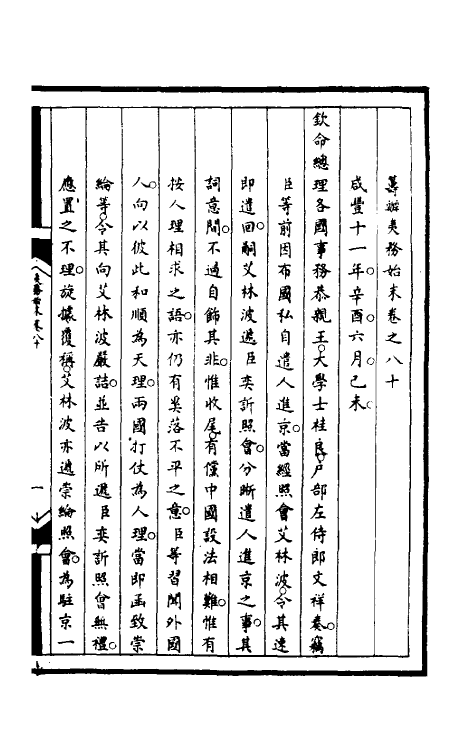 籌辦夷務始末卷之八十
咸豐十一年。辛酉六月。己未。
欽命總理各國事務恭親王。大學士桂良。戶部左侍郎文祥奏。竊
臣等前因布國私自遣人進京。當經照會艾林波。令其速
即遣回。嗣艾林波遞臣奕訢照會。分晰遣人進京之事。其
詞意間。不過自飾其非。惟收尾。有儻中國設法相難。惟有
按人理相求之語。亦仍有奚落不平之意。臣等習聞外國
人。向以彼此和順為天理。兩國打仗為人理。當即函致崇
綸等。令其向艾林波嚴詰。並告以所遞臣奕訢照會無禮。
應置之不理。旋據覆稱。艾林波亦遞崇綸照會。為駐京一
夷務始末卷八十
一